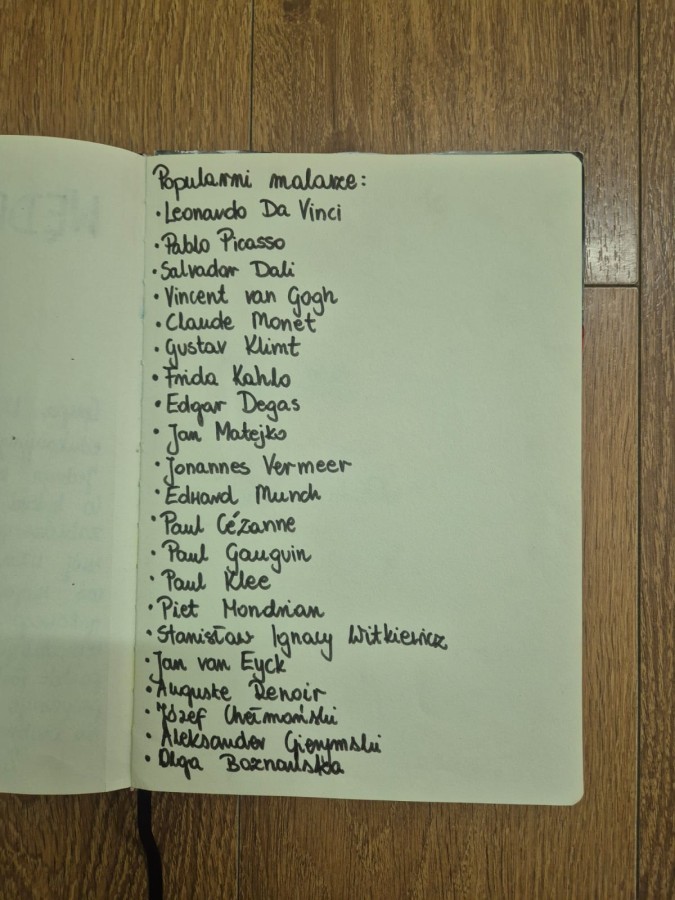 Popularni malarze:
• Leonardo Da Vinci
• Pablo Picasso
• Salvador Dali
• Vincent van Gogh
• Claude Monet
• Gustav Klimt
• Frida Kahlo
• Edgar Degas
• Jan Matejko
• Jonannes Vermeer
• Edward Munch
• Paul Cézanne
• Paul Gauguin
• Paul Klee
• Piet Mondrian
• Stanisław Ignacy Witkiewicz
• Jan van Eyck
• Auguste Renoir
• Józef Chełmoński
• Aleksander Gierymski
• Olga Boznańska